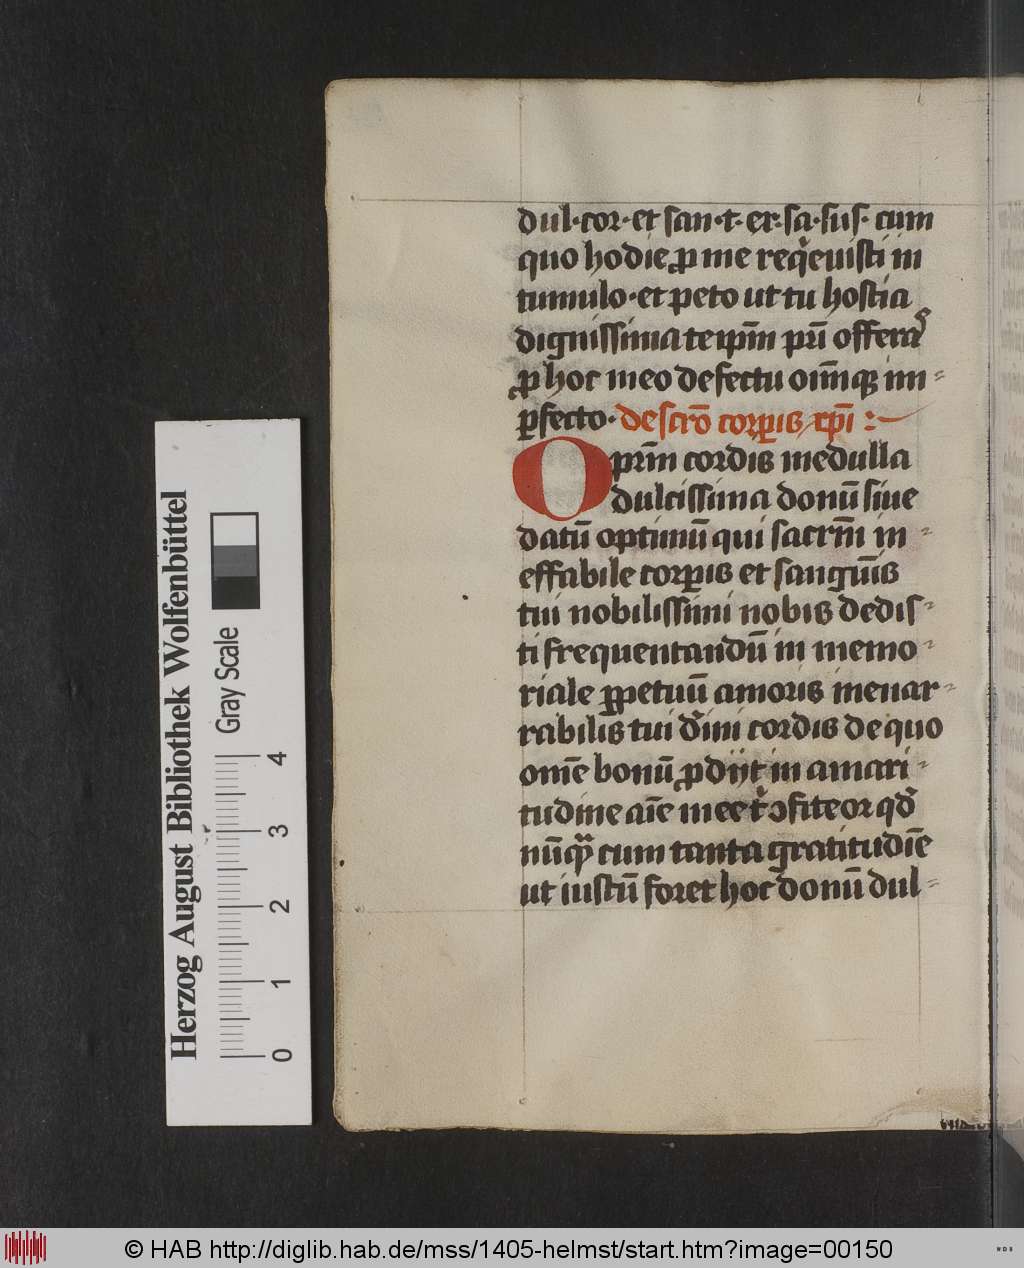 dul·cor·et san·t·er·sa·sus· cum
quo hodie ꝓ me req̇euisti in
tumulo·et peto ut tu hostia
dignissima teip̅m pr̅i offeraˢ
ꝓ hoc meo defectu om̅iqꝫ im⸗
ꝑfecto· de scr̅o corꝑis xp̅i :
O pr̅m cordis medulla
dulcissima donu̅ siue
datu̅ optimu̅ qui sacrm̅ in⸗
effabile corꝑis et sangu̅is
tui nobilissimi nobis dedis⸗
ti frequentandu̅ in memo⸗
riale ꝑpetuu̅ amoris inenar⸗
rabilis tui diuini cordis de quo
om̅e bonu̅ ꝓdijt in amari⸗
tudine ai̅e mee t ꝯfiteor qd̅
nu̅qᷓ cum tanta gratitudi̅e
ut iustu̅ foret hoc donu̅ dul⸗
Herzog August Bibliothek Wolfenbüttel
Gray Scale
0 1 2 3 4
© HAB http://diglib.hab.de/mss/1405-helmst/start.htm?image=00150